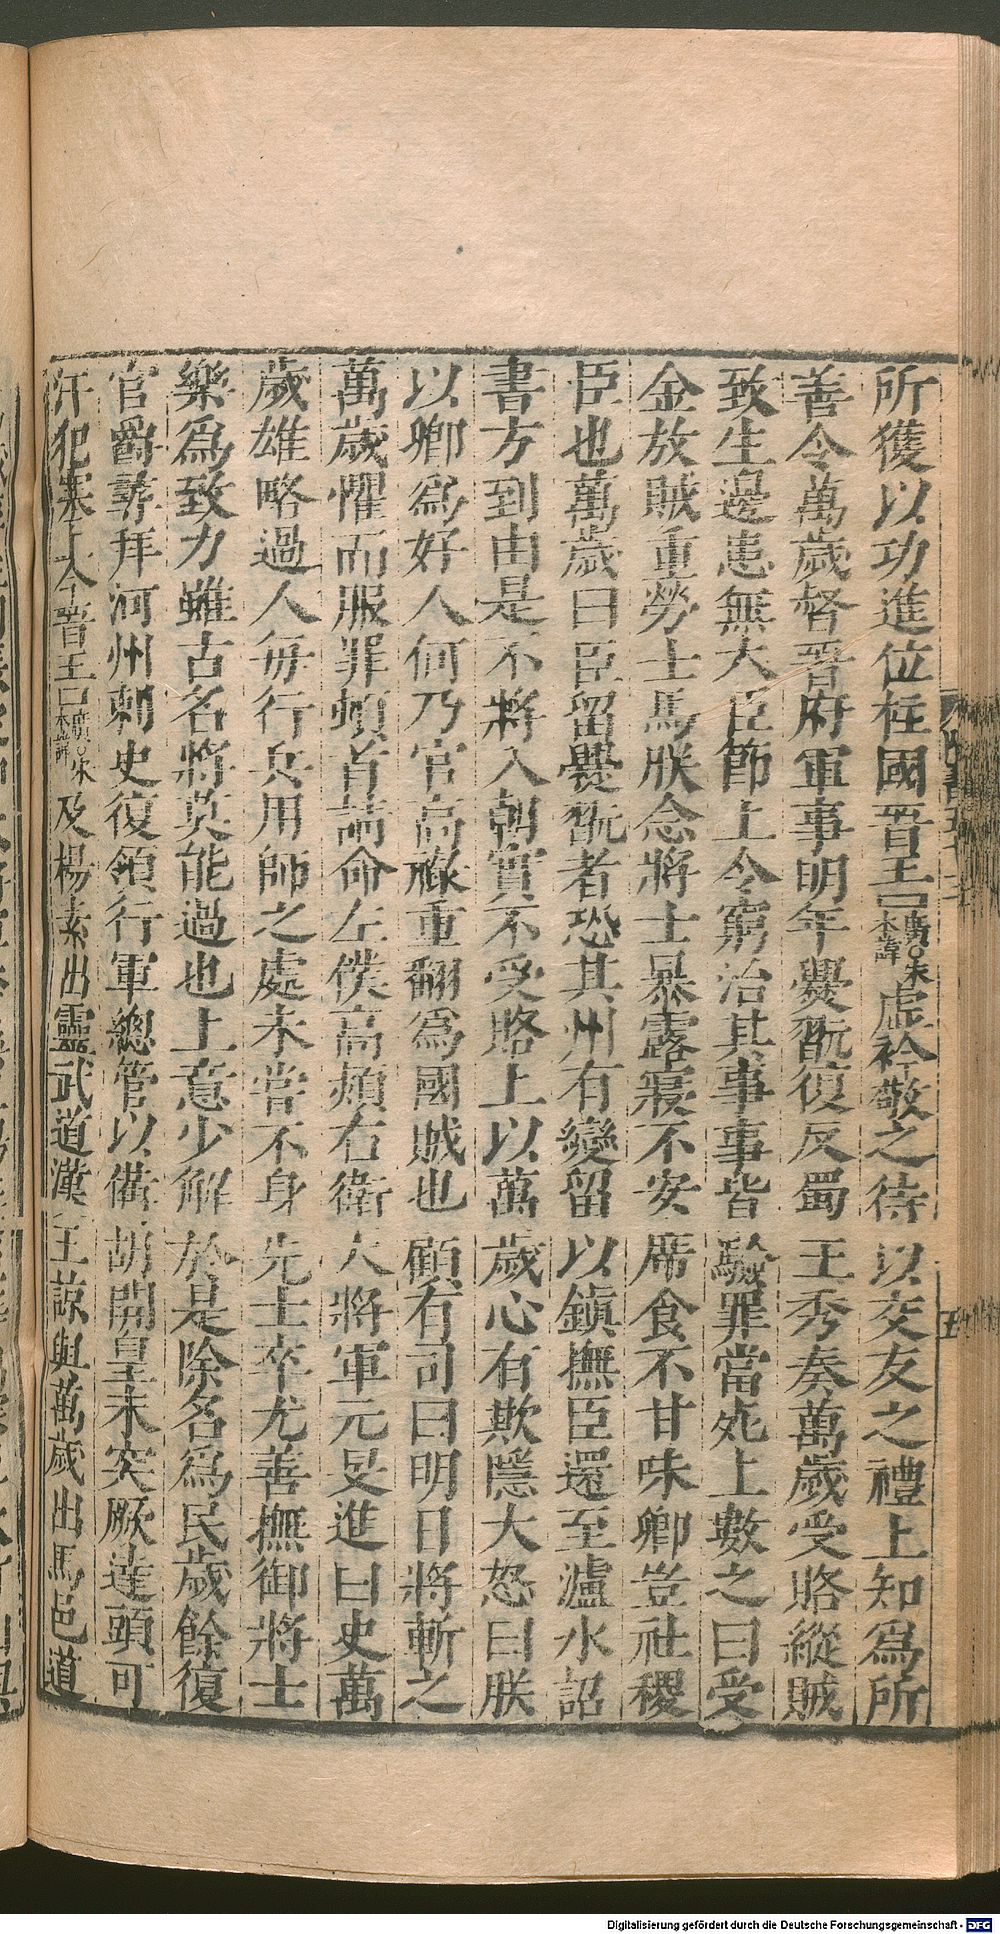 所獲以功進位柱國晋王□虛衿敬之待以交友之禮上知爲所
善令萬歲督晋府軍事明年爨翫復反蜀王秀奏萬歲受賂縱賊
致生邊患無大臣節上令窮治其事事皆驗罪當死上數之曰受
金放賊重勞士馬朕念將士暴露寢不安席食不甘味卿豈社稷
臣也萬歲曰臣留爨翫者恐其州有變留以鎮撫臣還至瀘水詔
書方到由是不將入朝實不受賂上以萬歲心有欺隱大怒曰朕
以卿爲好人何乃官高祿重翻爲國賊也顧有司曰明日將斬之
萬歲懼而服罪頓首請命左僕高熲右衛大將軍元旻進曰史萬
歲雄略過人每行兵用師之處未嘗不身先士卒尤善撫御將士
樂爲致力雖古名將英能過也上意少解於是除名爲民歲餘復
官爵尋拜河州刺史復領行軍總管以備胡開皇末突厥達頭可
汗犯塞上令晋王□及楊素出靈武道漢王諒與萬歲出馬邑道
Digitalisierung gefördert durch die Deutsche Forschungsgemeinschaft - DFG